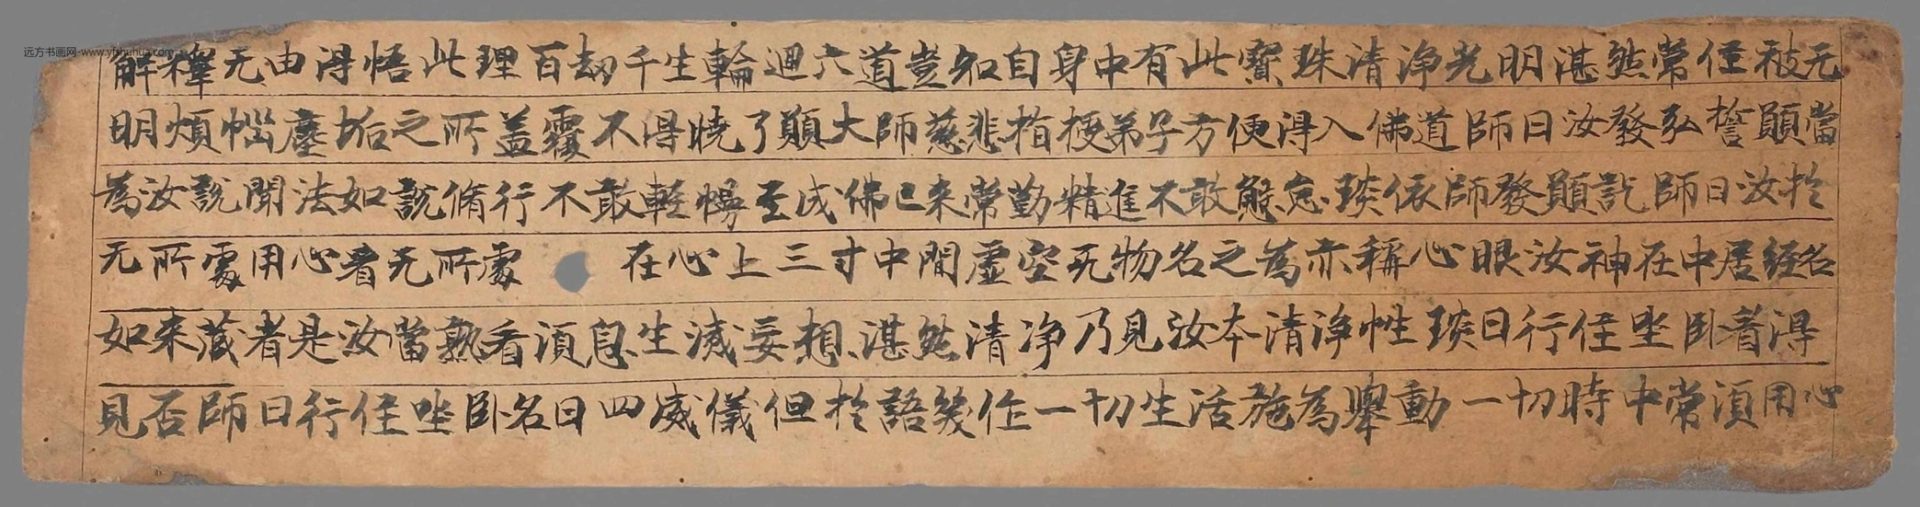 远方书画网-www.yfshuhua.org
解禪无由得悟此理百劫千生輪迴六道豈知自身中有此寳珠清淨光明湛然常住被无
明煩惱塵垢之所盖覆不得曉了願大師慈悲指授弟子方便得入佛道師曰汝發弘誓願當
為汝說聞法如說脩行不敢輕慢至成佛已来常勤精進不敢懈怠琰依師發願訖師曰汝扵
无所處用心看无所處 在心上三寸中間虛空无物名之為亦稱心眼汝神在中居經名
如来藏者是汝當熟看須息生滅妄想湛然清净乃見汝本清淨性琰曰行住坐卧看得
見否師曰行住坐卧名曰四威儀但扵語笑作一切生活施為舉動一切時中常須用心